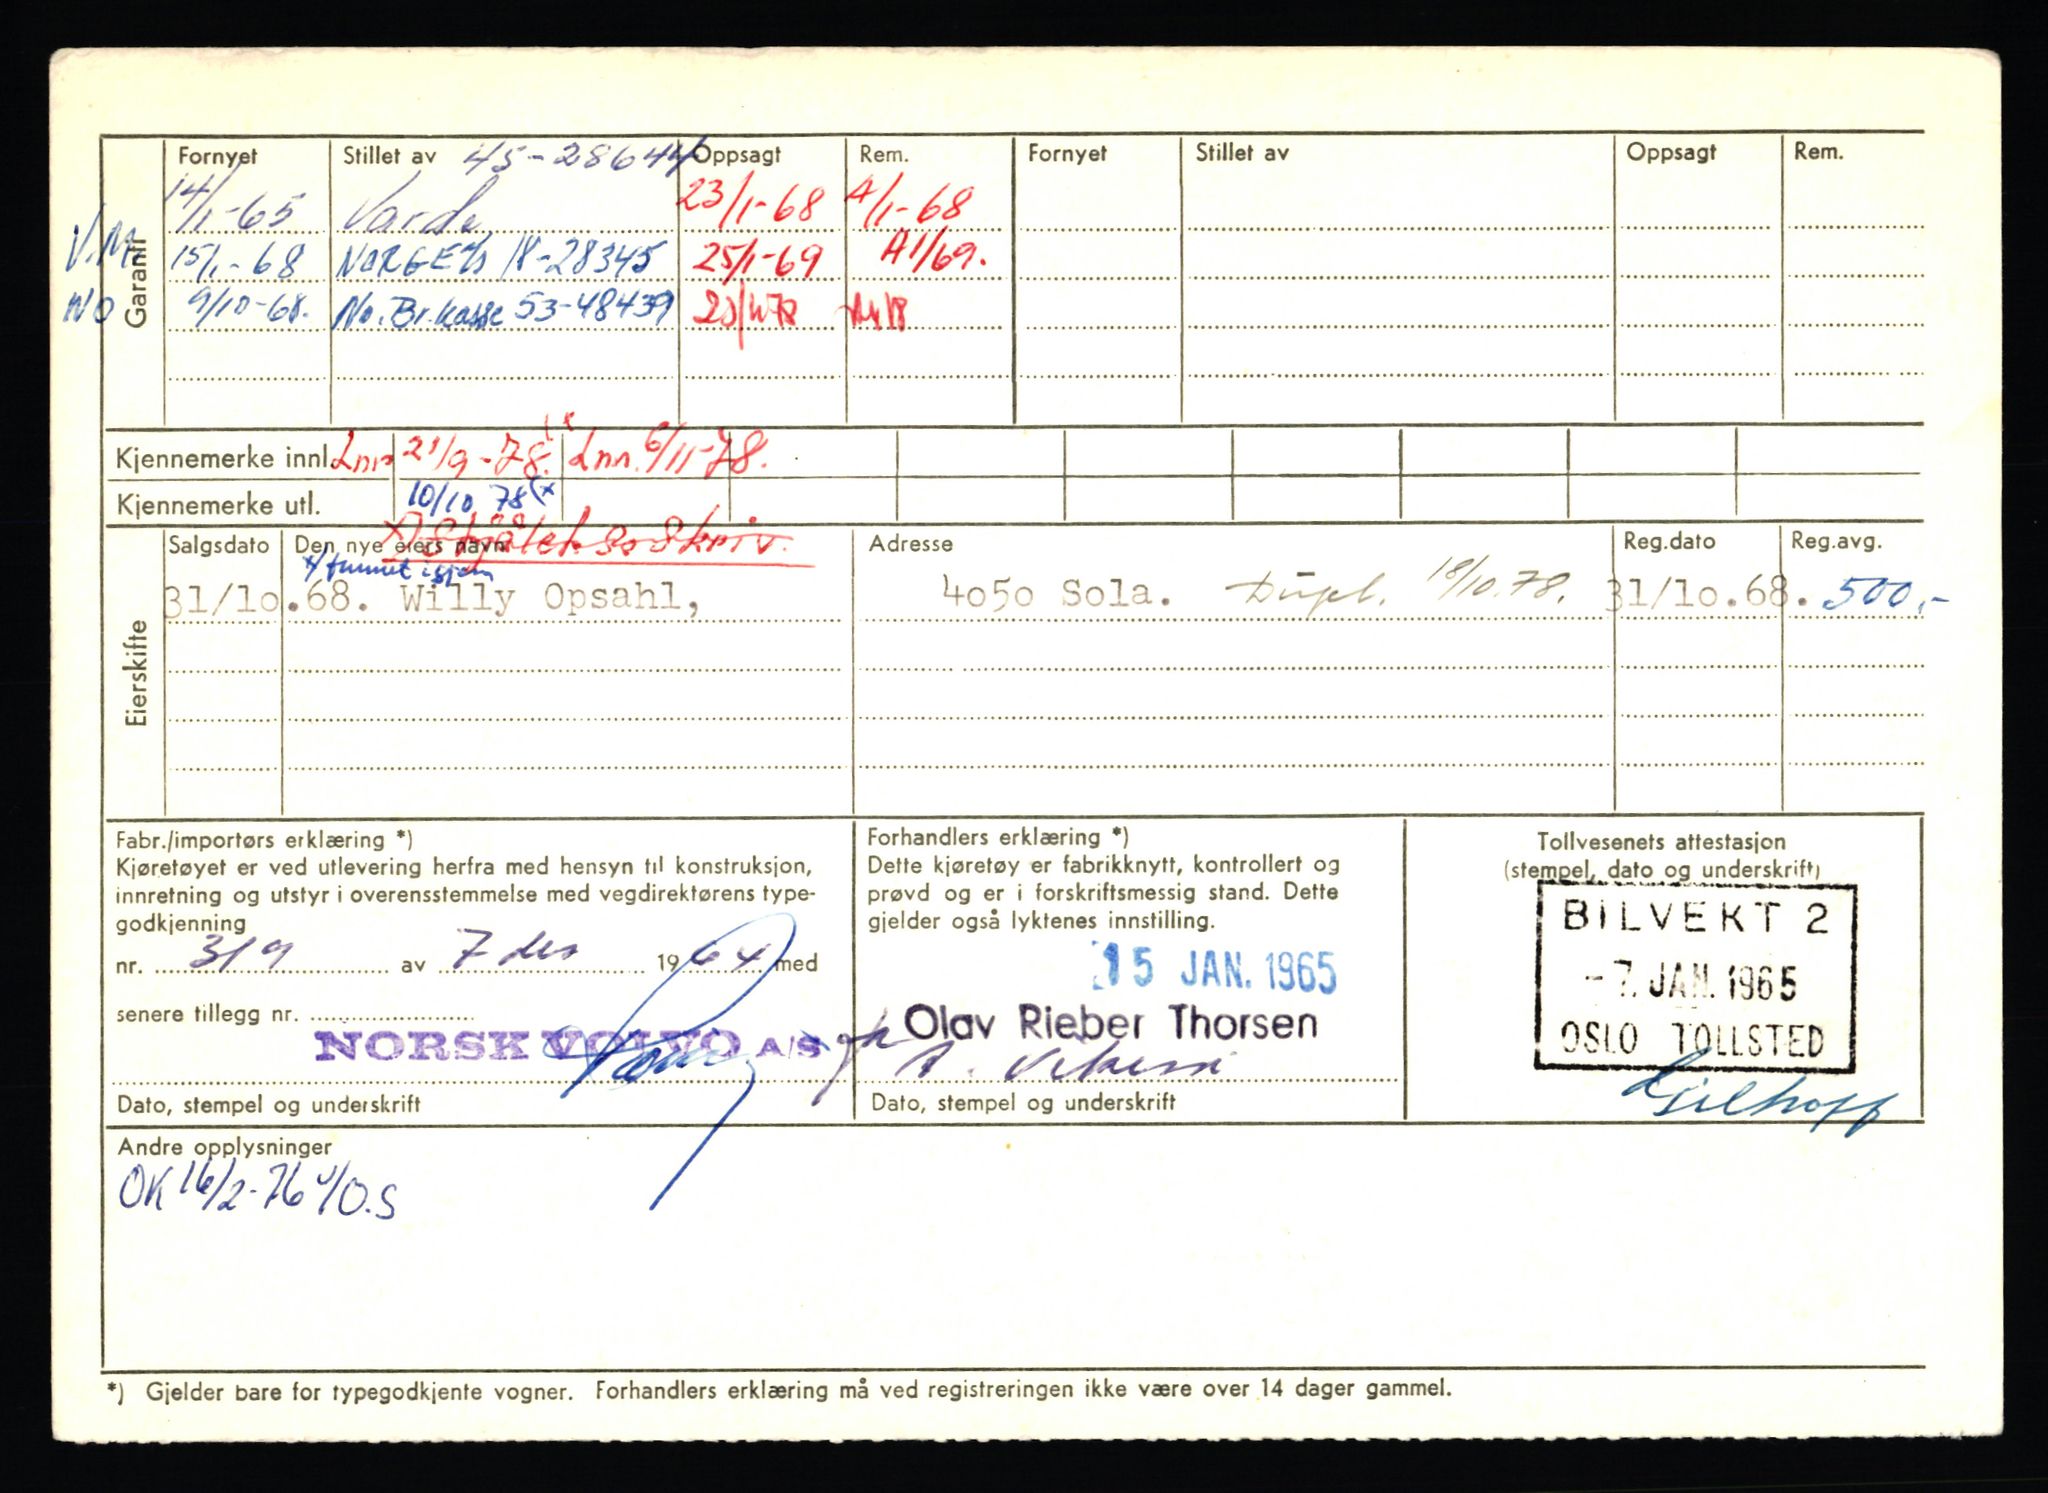 Garanti
Fornyet Stillet av 45-28644 Oppsagt Rem. Fornyet Stillet av Oppsagt Rem.
14/1-65 Varde 23/1-68 A/1-68
V.M. 15/1-68 NORGE A/S 18-28345 25/1-69 A1/69.
NO 9/10-68. No. Br.kasse 53-48439
Kjennemerke innl. Inn 21/9-78. Inn. 6/11-78.
Kjennemerke utl. 10/10 78 (x
x) Stjålet
Eierskifte
Salgsdato Den nye eiers navn Adresse Reg.dato Reg.avg.
x) funnet igjen
31/10.68. Willy Opsahl, 4050 Sola. Dupl. 18/10.78. 31/10.68. 500,-
Fabr./importørs erklæring *)
Kjøretøyet er ved utlevering herfra med hensyn til konstruksjon,
innretning og utstyr i overensstemmelse med vegdirektørens type-
godkjenning
nr. 319 av 7 des 1964 med
senere tillegg nr.
NORSK VOLVO A/S
Dato, stempel og underskrift
Forhandlers erklæring *)
Dette kjøretøy er fabrikknytt, kontrollert og
prøvd og er i forskriftsmessig stand. Dette
gjelder også lyktenes innstilling.
15 JAN. 1965
Olav Rieber Thorsen
Dato, stempel og underskrift
Tollvesenets attestasjon
(stempel, dato og underskrift)
BILVEKT 2
-7. JAN. 1965
OSLO TOLLSTED
Andre opplysninger
OK 16/2-76 O.S
*) Gjelder bare for typegodkjente vogner. Forhandlers erklæring må ved registreringen ikke være over 14 dager gammel.